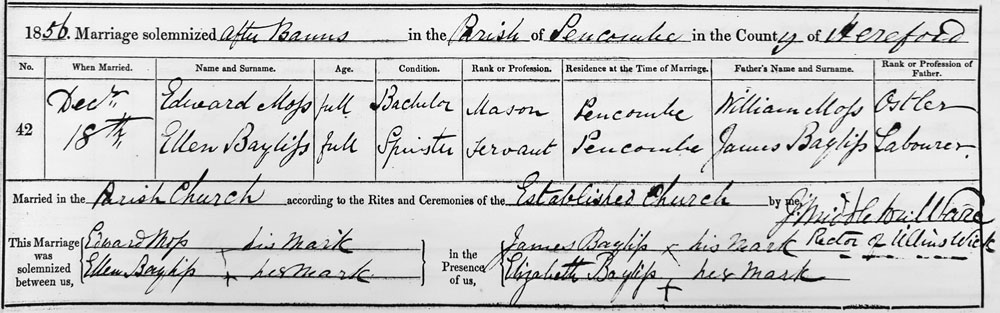 1856. Marriage solemnized after Banns in the Parish of Pencombe in the County of Hereford
No. When Married. Name and Surname. Age. Condition. Rank or Profession. Residence at the Time of Marriage. Father's Name and Surname. Rank or Profession of Father.
42 Decr. 18th
Edward Moss full Bachelor Mason Pencombe William Moss Ostler
Ellen Bayliss full Spinster Servant Pencombe James Bayliss Labourer.
Married in the Parish Church according to the Rites and Ceremonies of the Established Church by me,
Rector of
This Marriage was solemnized between us,
Edward Moss x his mark
Ellen Bayliss x her mark
in the Presence of us,
James Bayliss x his mark
Elizabeth Bayliss x her mark